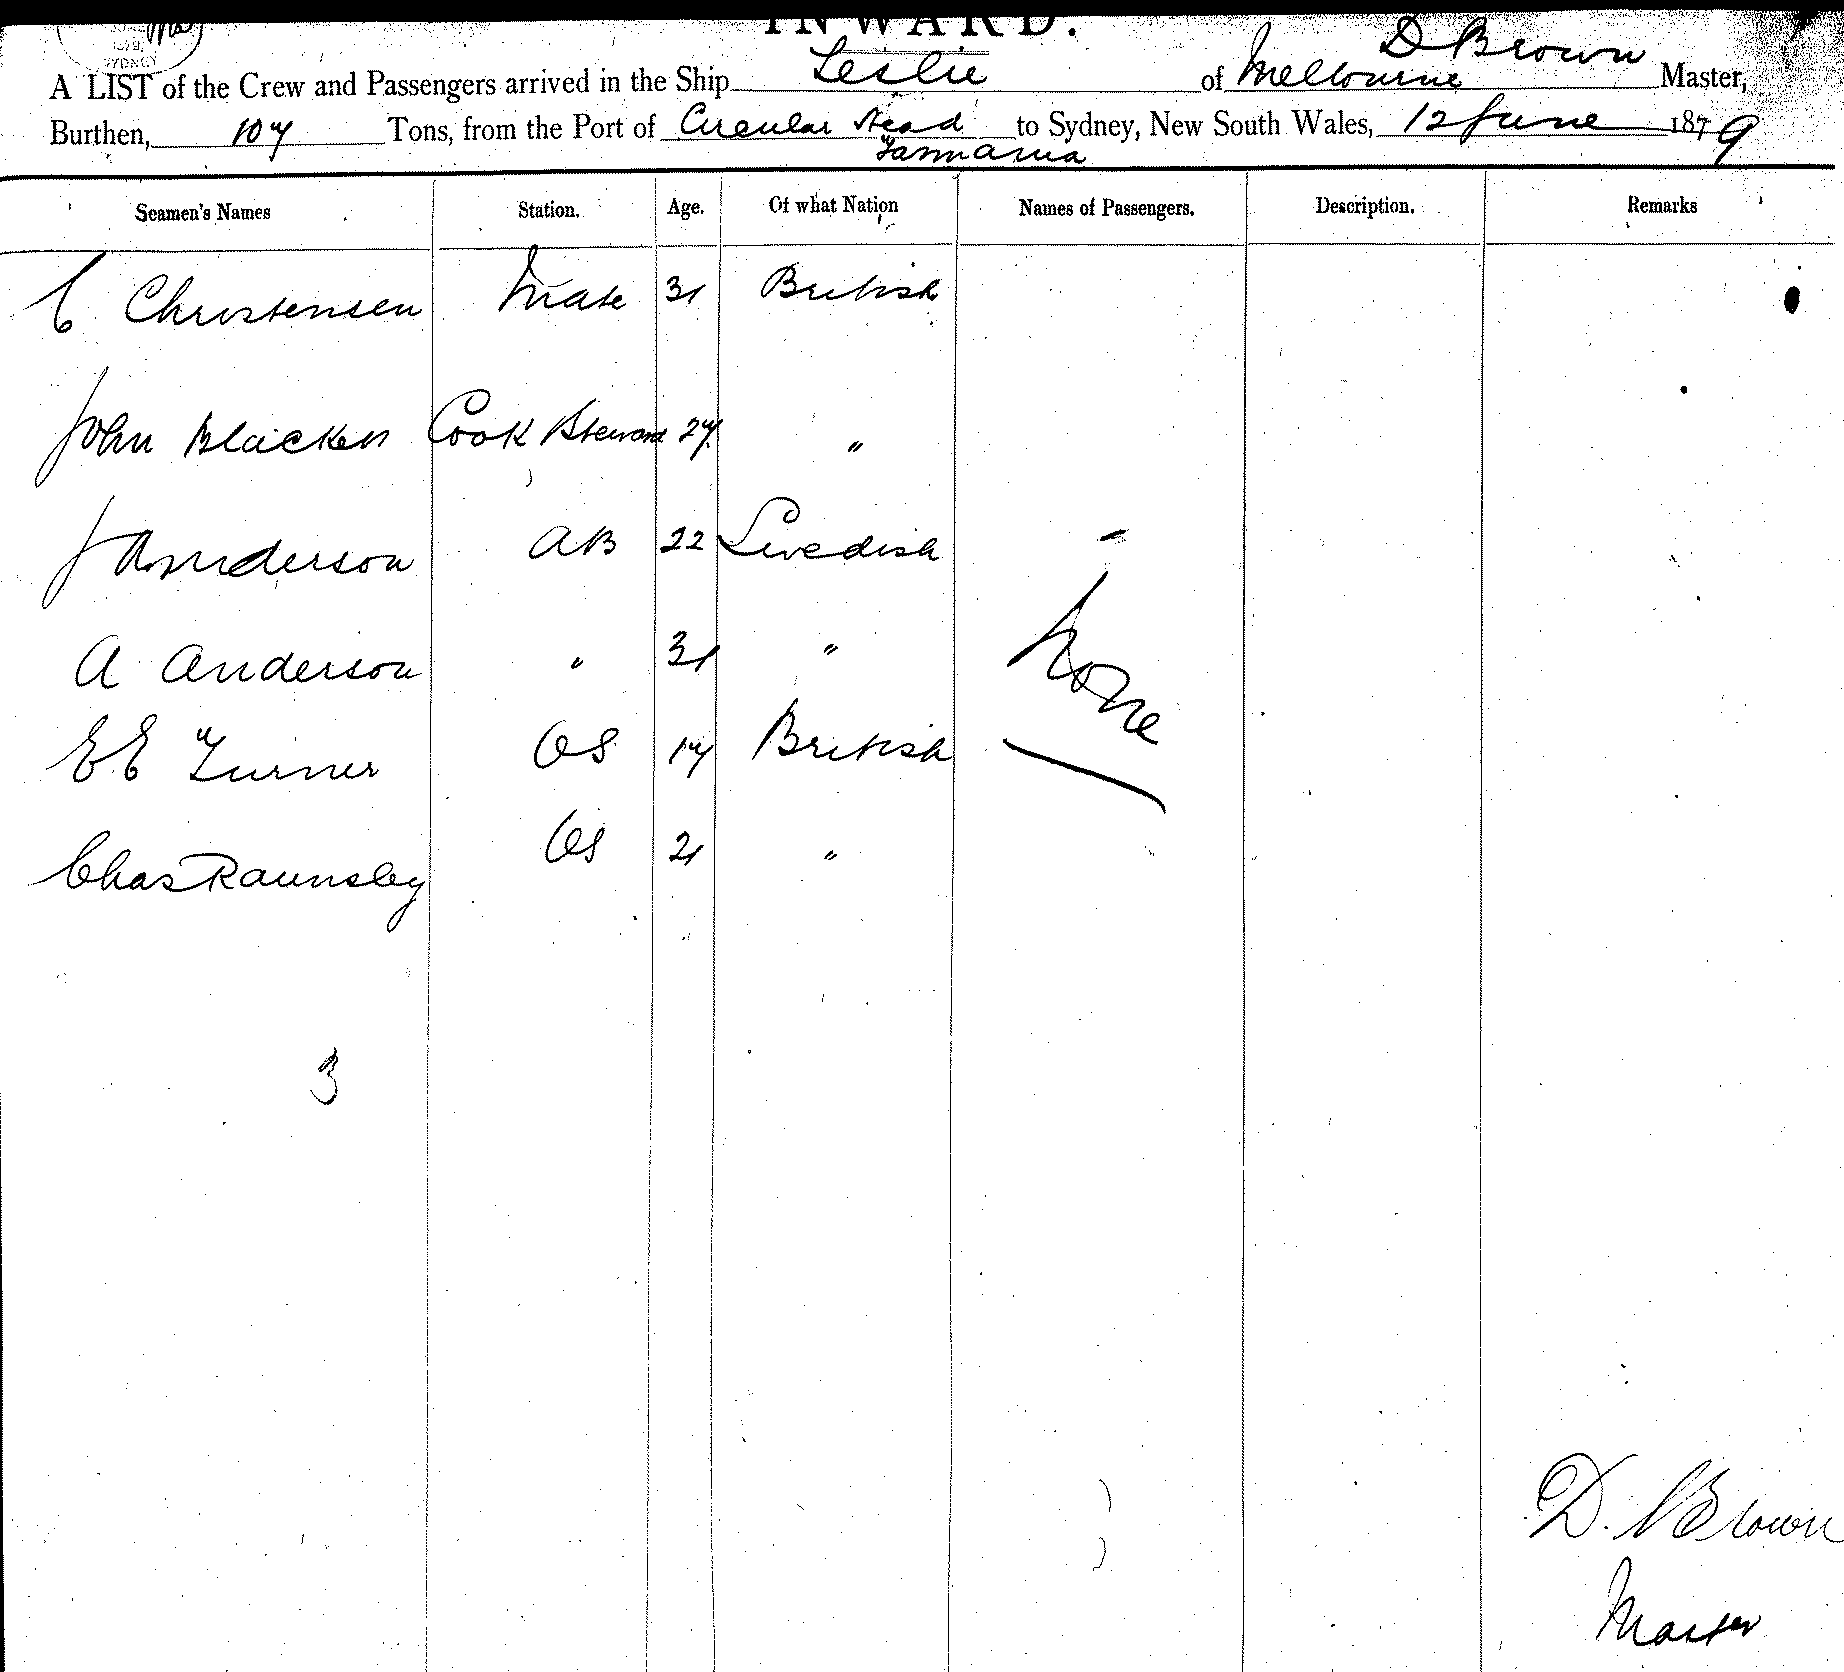 INWARD.
SYDNEY
D Brown
A LIST of the Crew and Passengers arrived in the Ship Leslie of Melbourne Master,
Burthen, 107 Tons, from the Port of Circular Head to Sydney, New South Wales, 12 June 1879
Tasmania
Seamen's Names Station. Age. Of what Nation Names of Passengers. Description. Remarks
C Christensen Mate 31 British
John Blacken Cook Steward 27 "
J Annderson AB 22 Swedish
A Anderson " 31 "
None
E E Turner OS 17 British
Chas Raunsley OS 21 "
3
D. Brown
Master